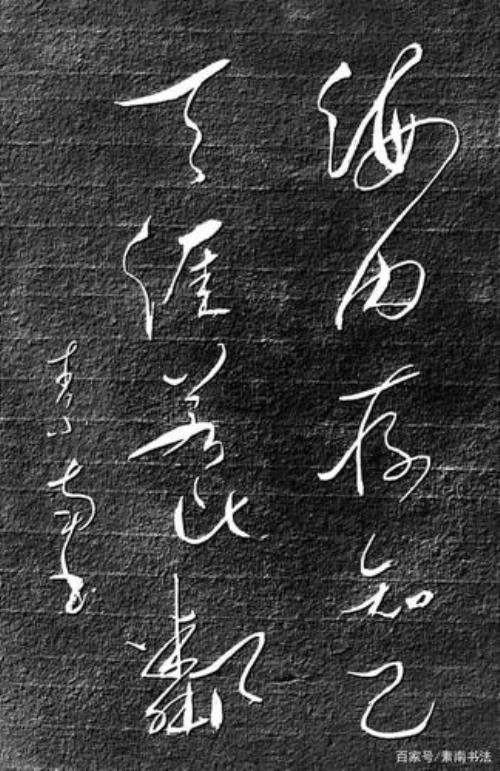 海内存知己
天涯若比鄰
素南书
百家号/素南书法